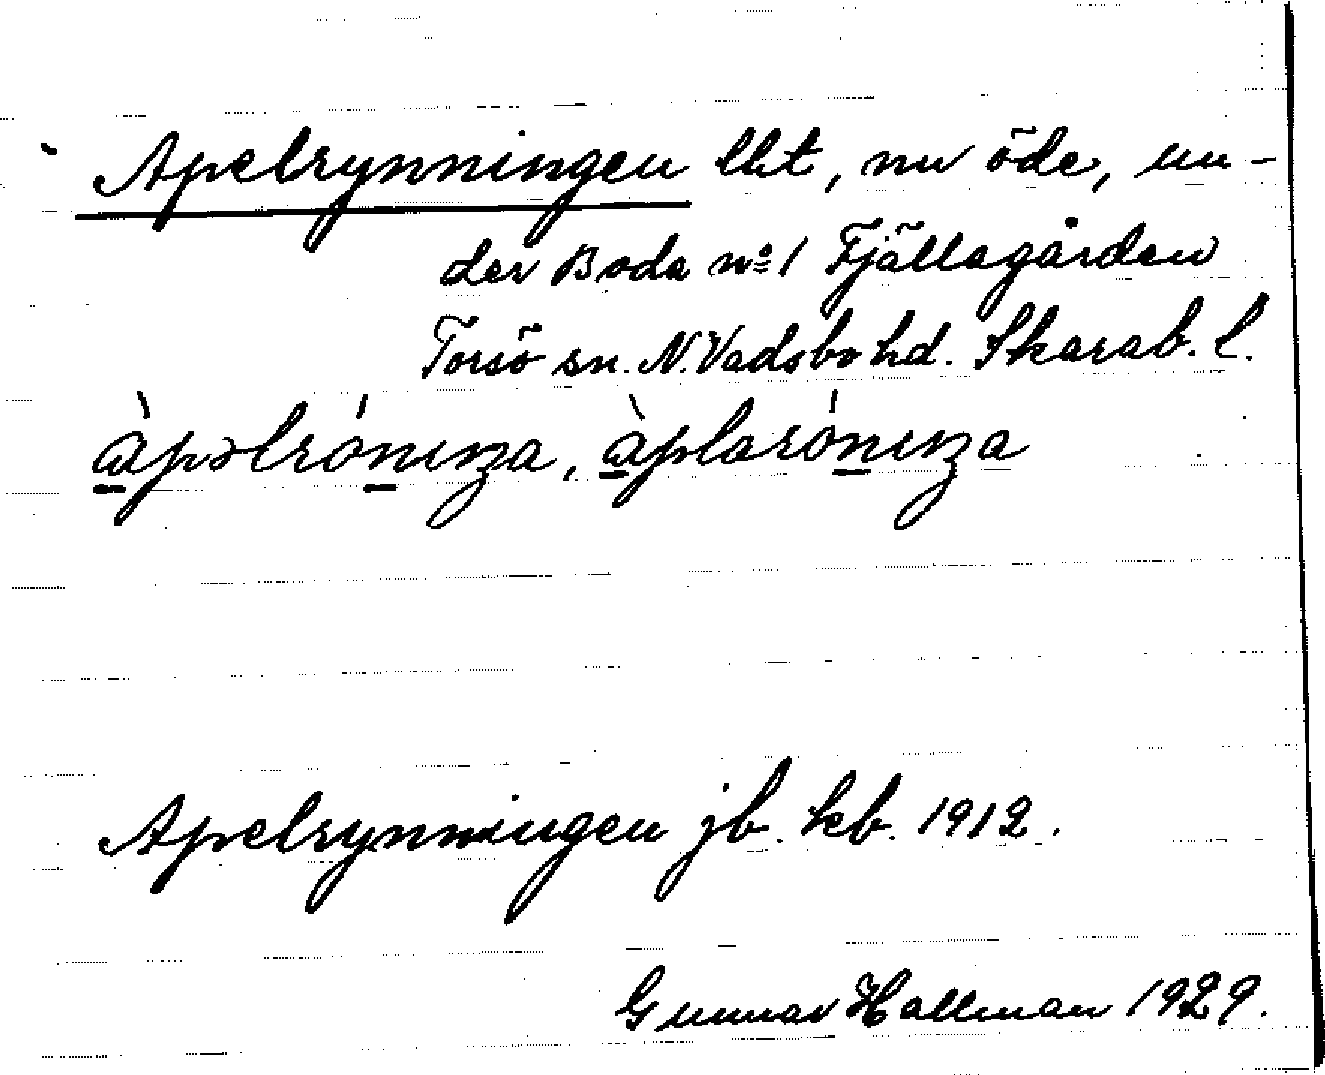 Apelrynningen lht, nu öde, un-
der Boda nº 1 Fjällagården
Torsö sn. N. Vadsbo hd. Skarab. l.
àpəlrónıŋa, àplarónıŋa
Apelrynningen jb. kb. 1912.
Gunnar Hallman 1929.